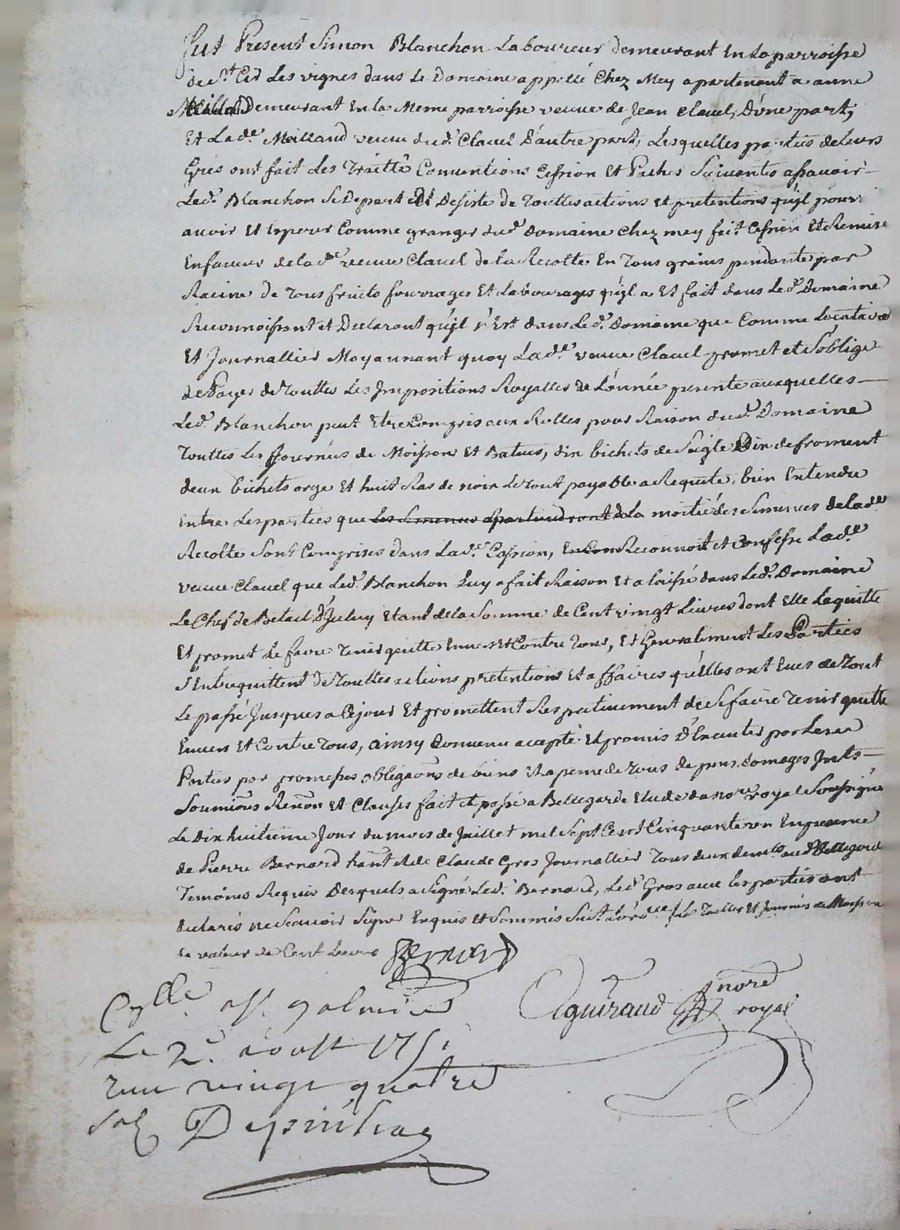 fut Present Simon Blanchon Laboureur demeurant En la parroisse
de St Cir Les vignes dans Le Domaine appellé Chez Mey apartenant a anne
Meilland Demeurant En La Meme parroisse veuve de Jean Clavel, D'une part,
Et Lade. Meilland veuve dud. Clavel D'autre part, Lesquelles parties de leurs
Gres ont fait Les Traitté Conventions Cession Et Paches Suivantes assavoir
Led. Blanchon Se Depart et Desiste de Touttes actions Et pretentions qu'jl pouroit
avoir Et Esperer Comme granger dud. Domaine Chez mey fait Cession Et Remise
En faveur de lade. veuve Clavel de la Recolte En Tous grains pendante par
Racine de Tous fruicts fourrages Et Labourages qu'jl a Et fait dans Led. Domaine
Reconnoissant et Declarant qu'jl n'Est dans Led. Domaine que Comme Locataire
Et Journallier Moyannant quoy Lade. veuve Clavel promet et s'oblige
de Payer de Touttes Les Jmpositions Royalles de L'année presente ausquelles
Led. Blanchon peut Etre Compris aux Rolles pour Raison dud. Domaine
Touttes Les Journées de Moisson Et Batues, dix bichets de Seigle Dix de froment
deux bichets orge Et huit Ras de noir Le Tout payable a Requete, bien Entendu
Entre Les parties que les Semences apartiendront de La moitié des Semences de lade
Recolte Sont Comprises dans Lade. Cession, Reconnoit et Confesse Lade.
veuve Clavel que Led. Blanchon Luy a fait Raison Et a laissé dans Led. Domaine
Le Chef de Betail D'Jceluy Etant de la Somme de Cent vingt Livres dont Elle Le quitte
Et promet Le faire Tenir quitte Envers Et Contre Tous, Et Generalement Les Parties
s'Entrequittent de Touttes actions pretentions Et affaires qu'elles ont Eues de Tout
Le passé Jusques a Ce jour Et promettent Respectivement de Se faire Tenir quitte
Envers Et Contre Tous, ainsy Convenu accepté Et promis D'Executer par Les
Parties par promesses obligaons de biens Et a peine de Tous depens domages Jnts
Soumions Renon Et Clauses fait et passé a Bellegarde Etude du nore royal Soussigné
Le Dix huitieme Jour du mois de Juillet mil Sept Cent Cinquante un En presence
de Pierre Bernard hant Claude Gros Journallier Tous deux demts aud Bellegarde
Temoins Requis Desquels a Signé Led. Bernard, Led. Gros avec les parties ont
declarés ne Scavoir Signer Enquis et Sommés Suivt. L'ordce. Les Tailles Et Journées de Moisson
de valeur de Cent Livres Bernard
Cllé a St galmier
Le 2e. aoust 1751
reçu vingt quatre
sols
Aguiraud nore royal